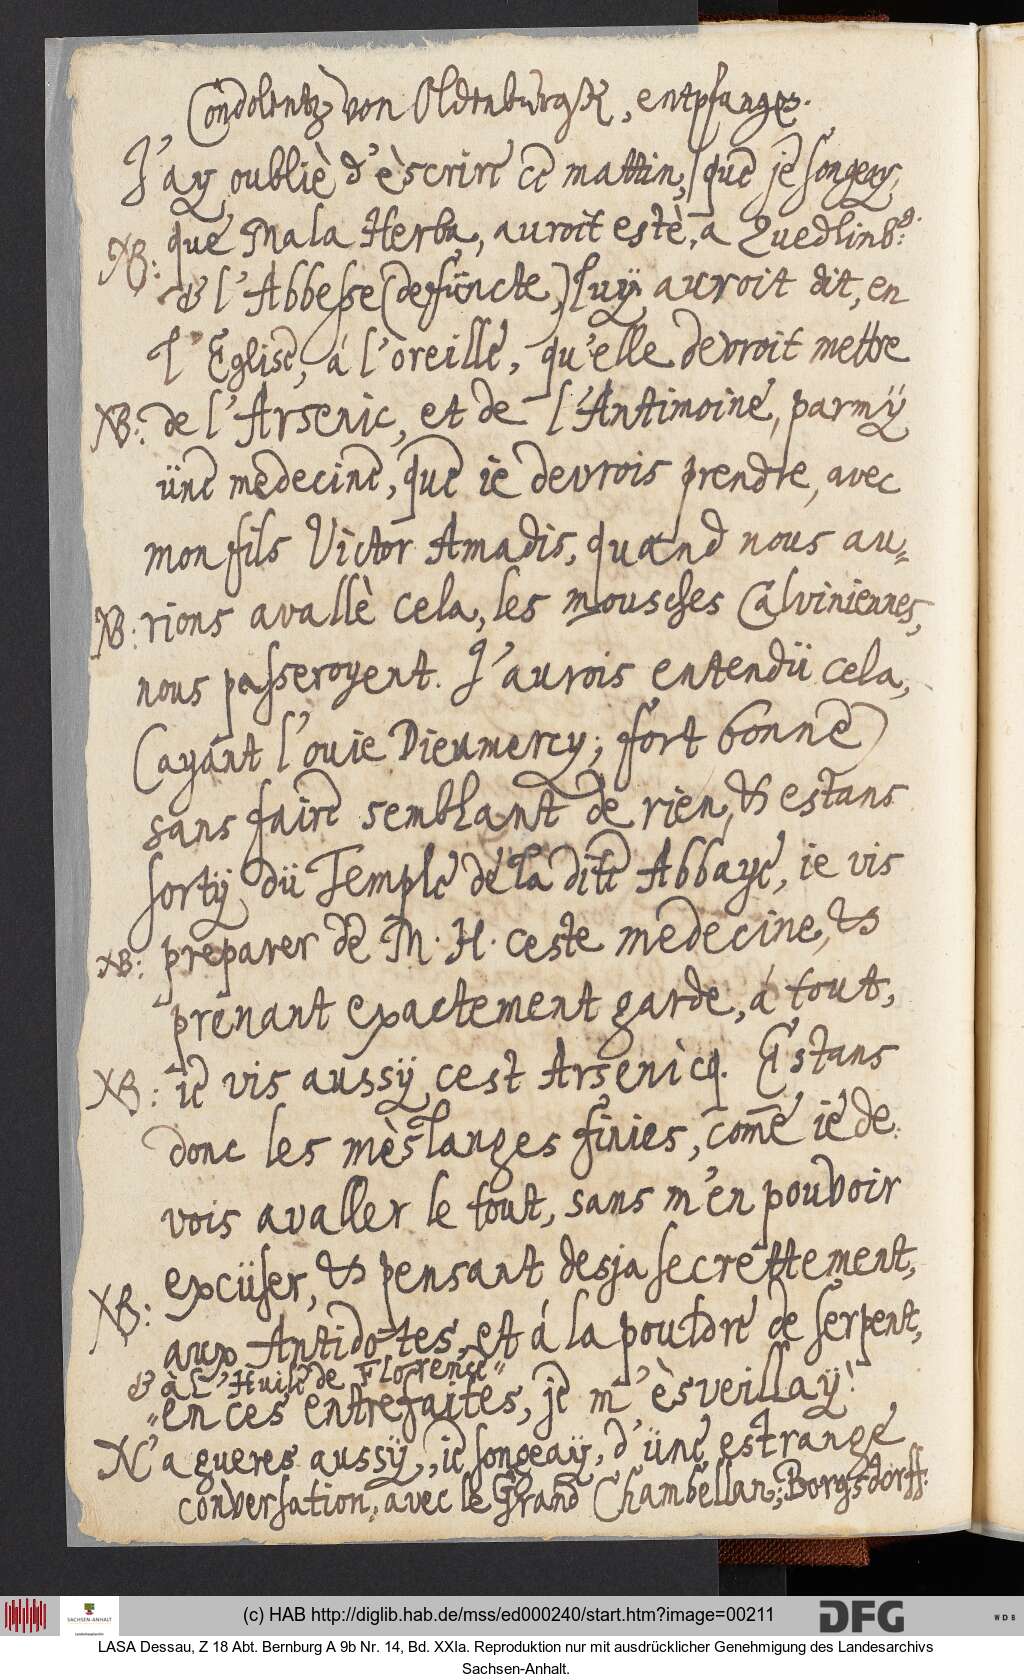 Condolentz von Oldenburgk, entpfangen.
J'ay oubliè d'èscrire ce mattin, que je songeay,
NB: que Mala Herba, auroit estè, a Quedlinb:g.
& l'Abbesse (defüncte,) luy auroit dit, en
l'Eglise, á l'oreille, qu'elle devroit mettre
NB: de l'Arsenic, et de l'Antimoine, parmÿ
üne medecine, que ie devrois prendre, avec
mon fils Victor Amadis, quand nous au=
NB: rions avallè cela, les mousches Calviniennes,
nous passeroyent. J'aurois entendü cela,
(ayant l'ouie Dieumercy; fort bonne)
sans faire semblant de rien, & estans
sortÿ dü Temple de la dite Abbaye, ie vis
NB: preparer de M. H. ceste medecine, &
prenant exactement garde, á tout,
NB: ie vis aussÿ cest Arsenicq. Estans
donc les mèslanges finies, come ie de:
vois avaller le tout, sans m'en pouvoir
excüser, & pensant desja secrettement,
NB: aux Antidotes, et á la pouldre de serpent,
& à L'Huile de Florence"
"en ces entrefaites, je m'èsveillaÿ!
N'agueres aussÿ, ie songeaÿ, d'üne estrange
conversation, avec le Grand Chambellan; Borgsdorff:
(c) HAB http://diglib.hab.de/mss/ed000240/start.htm?image=00211
SACHSEN-ANHALT
DFG
WDB
LASA Dessau, Z 18 Abt. Bernburg A 9b Nr. 14, Bd. XXIa. Reproduktion nur mit ausdrücklicher Genehmigung des Landesarchivs
Sachsen-Anhalt.